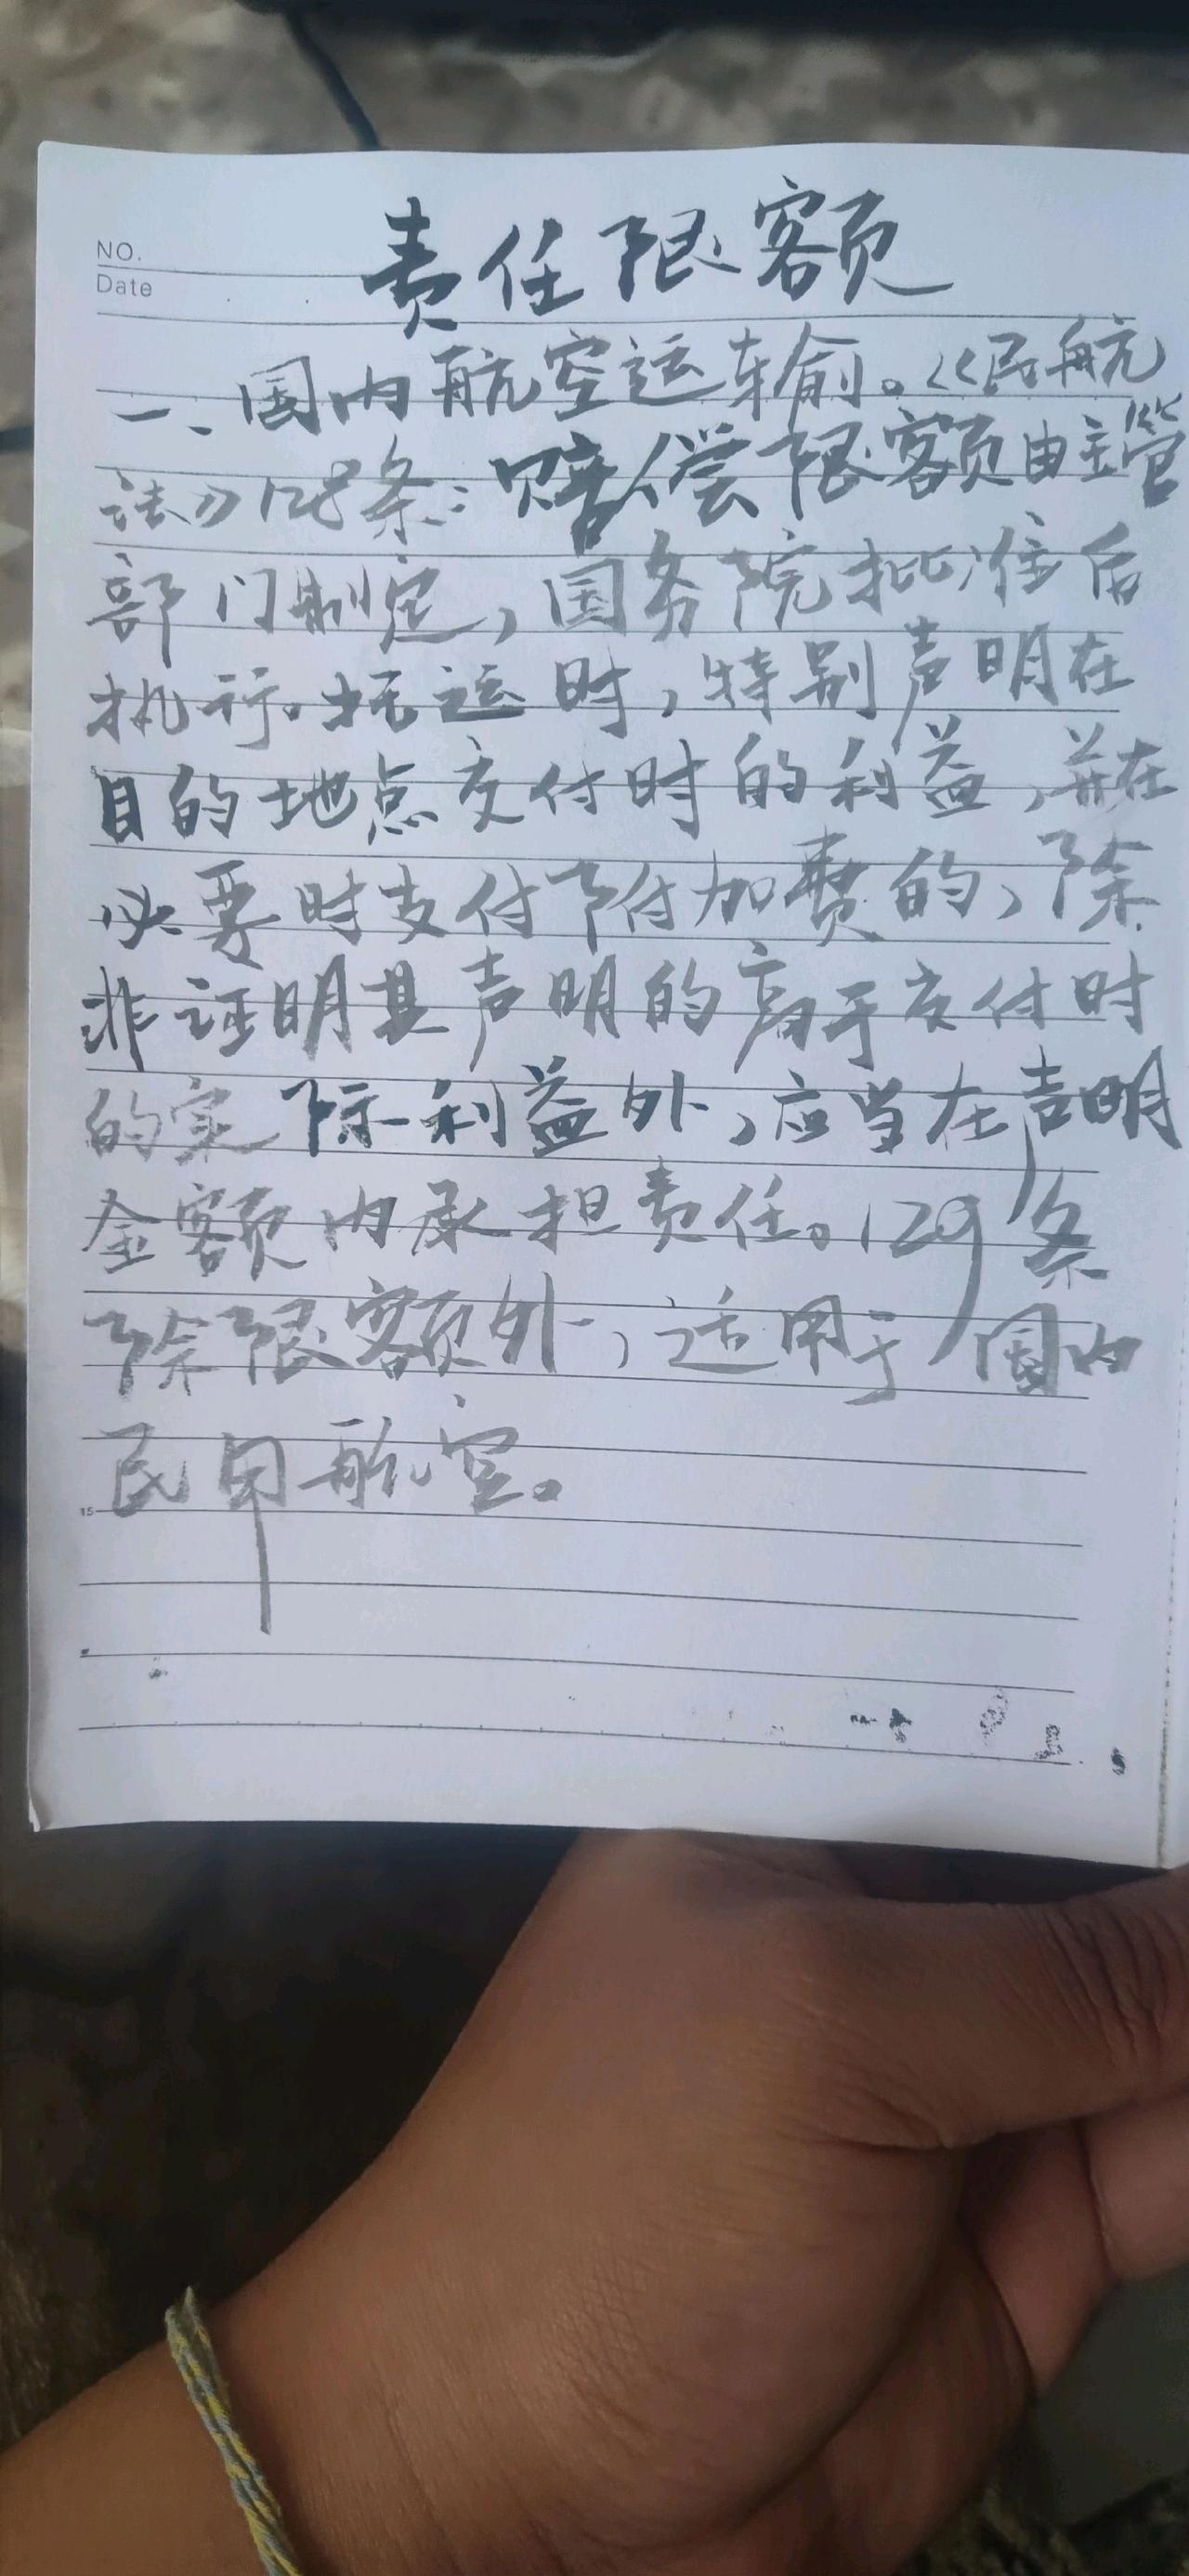 NO.
Date
责任限额
一、国内航空运输。《民航
法》128条:赔偿限额由主管
部门制定,国务院批准后
执行。托运时,特别声明在
目的地点交付时的利益,并在
必要时支付附加费的,除
非证明其声明的高于交付时
的实际利益外,应当在声明
金额内承担责任。129条
除限额外,适用于国内
民用航空。
15